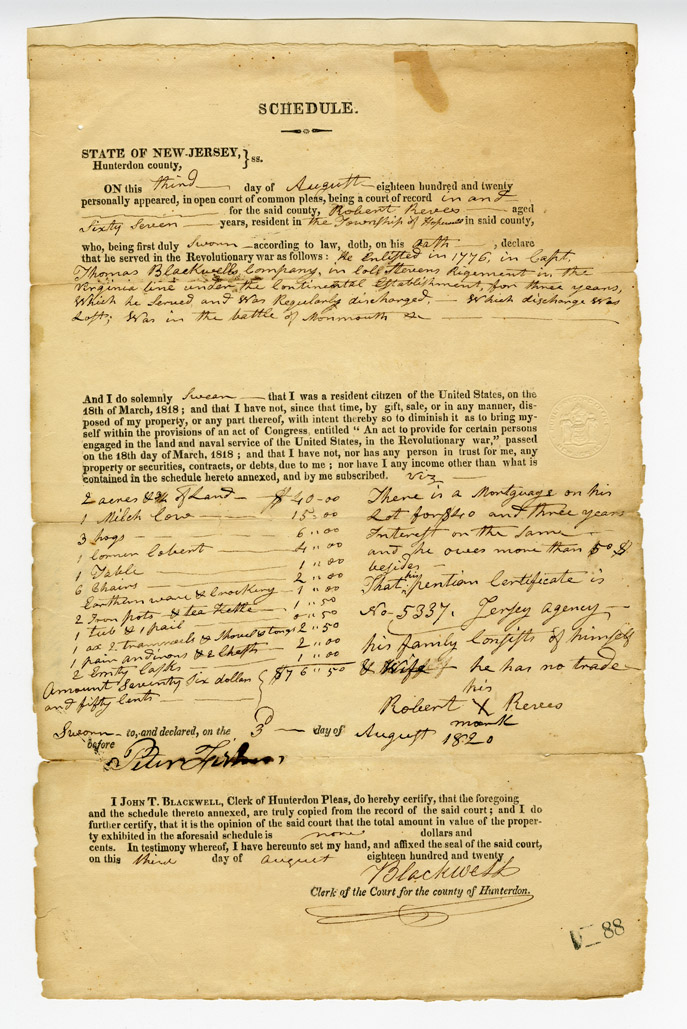 SCHEDULE.
STATE OF NEW-JERSEY, } ss.
Hunterdon county,
ON this third day of August eighteen hundred and twenty
personally appeared, in open court of common pleas, being a court of record in and
for the said county, Robert Reves aged
Sixty Seven years, resident in the Township of Hopewell in said county,
who, being first duly Sworn according to law, doth, on his oath, declare
that he served in the Revolutionary war as follows: He Enlisted in 1776, in Capt.
Thomas Blackwells Company, in Coll Stevens Rigement in the
Virginia line under the Continental Establishment, for three years,
Which he Served, and Was Regularly discharged, — Which discharge Was
Lost; Was in the battle of Monmouth &c
And I do solemnly Swear — that I was a resident citizen of the United States, on the
18th of March, 1818; and that I have not, since that time, by gift, sale, or in any manner, dis-
posed of my property, or any part thereof, with intent thereby so to diminish it as to bring my-
self within the provisions of an act of Congress, entitled "An act to provide for certain persons
engaged in the land and naval service of the United States, in the Revolutionary war," passed
on the 18th day of March, 1818; and that I have not, nor has any person in trust for me, any
property or securities, contracts, or debts, due to me; nor have I any income other than what is
contained in the schedule hereto annexed, and by me subscribed. viz
2 acres & of Land — $40-00
1 Milch Cow — 15-00
3 hogs — 6 " 00
1 corner Cobert — 4 " 00
1 Table — 1 " 00
6 Chairs — 2 " 00
Earthern ware & Crockery — 1 " 00
2 Iron pots & tea Kettle — 1 " 50
1 tub & 1 pail — 0 " 50
1 ax 2 trammels & Shovel & tongs 2 " 50
1 pair andirons & 2 Chests — 2 " 00
2 Emty Casks — 1 " 00
Amount Seventy Six dollars } $76 " 50
and fifty Cents —
There is a Mortguage on his
Lot for $40 and three years
Interest on the same —
and he owes more than 50 $
besides —
That his pention Certificate is
No- 5337. Jersey agency —
his family Consists of himself
& Wife — he has no trade —
his
Robert X Reves
mark
Sworn — to, and declared, on the 3 — day of August 1820
before
Peter
I JOHN T. BLACKWELL, Clerk of Hunterdon Pleas, do hereby certify, that the foregoing
and the schedule thereto annexed, are truly copied from the record of the said court; and I do
further certify, that it is the opinion of the said court that the total amount in value of the proper-
ty exhibited in the aforesaid schedule is none dollars and
cents. In testimony whereof, I have hereunto set my hand, and affixed the seal of the said court,
on this third day of august eighteen hundred and twenty
Blackwell
Clerk of the Court for the county of Hunterdon.
V—88